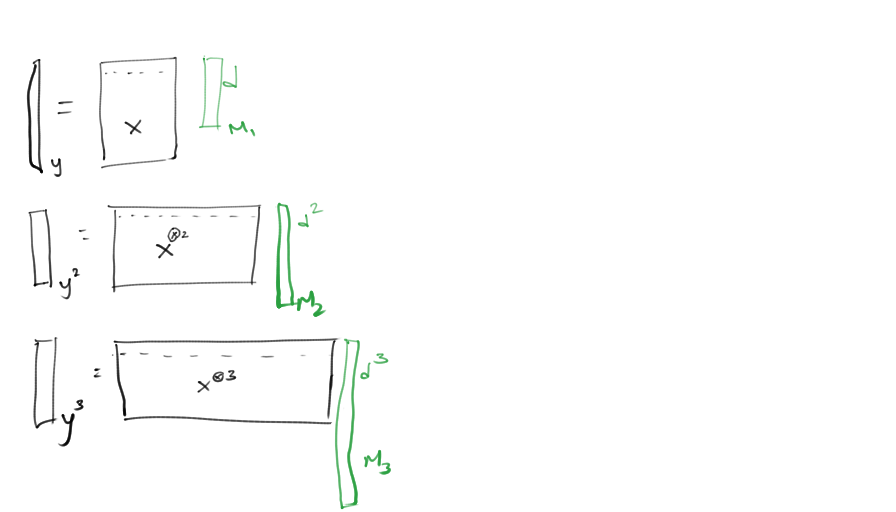 y = X d M₁
y² = X^⊗2 d² M₂
y³ = X^⊗3 d³ M₃